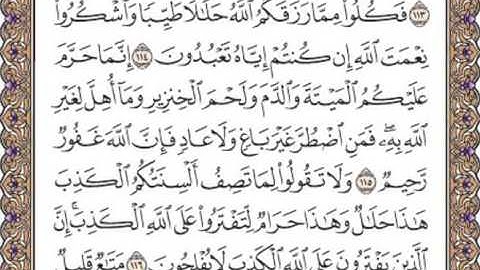 ١١٣ فَكُلُوا۟ مِمَّا رَزَقَكُمُ ٱللَّهُ حَلَٰلًا طَيِّبًا وَٱشْكُرُوا۟
نِعْمَتَ ٱللَّهِ إِن كُنتُمْ إِيَّاهُ تَعْبُدُونَ ١١٤ إِنَّمَا حَرَّمَ
عَلَيْكُمُ ٱلْمَيْتَةَ وَٱلدَّمَ وَلَحْمَ ٱلْخِنزِيرِ وَمَآ أُهِلَّ لِغَيْرِ
ٱللَّهِ بِهِۦ ۖ فَمَنِ ٱضْطُرَّ غَيْرَ بَاغٍ وَلَا عَادٍ فَإِنَّ ٱللَّهَ غَفُورٌ
رَّحِيمٌ ١١٥ وَلَا تَقُولُوا۟ لِمَا تَصِفُ أَلْسِنَتُكُمُ ٱلْكَذِبَ
هَٰذَا حَلَٰلٌ وَهَٰذَا حَرَامٌ لِّتَفْتَرُوا۟ عَلَى ٱللَّهِ ٱلْكَذِبَ ۚ إِنَّ
ٱلَّذِينَ يَفْتَرُونَ عَلَى ٱللَّهِ ٱلْكَذِبَ لَا يُفْلِحُونَ ١١٦ مَتَٰعٌ قَلِيلٌ